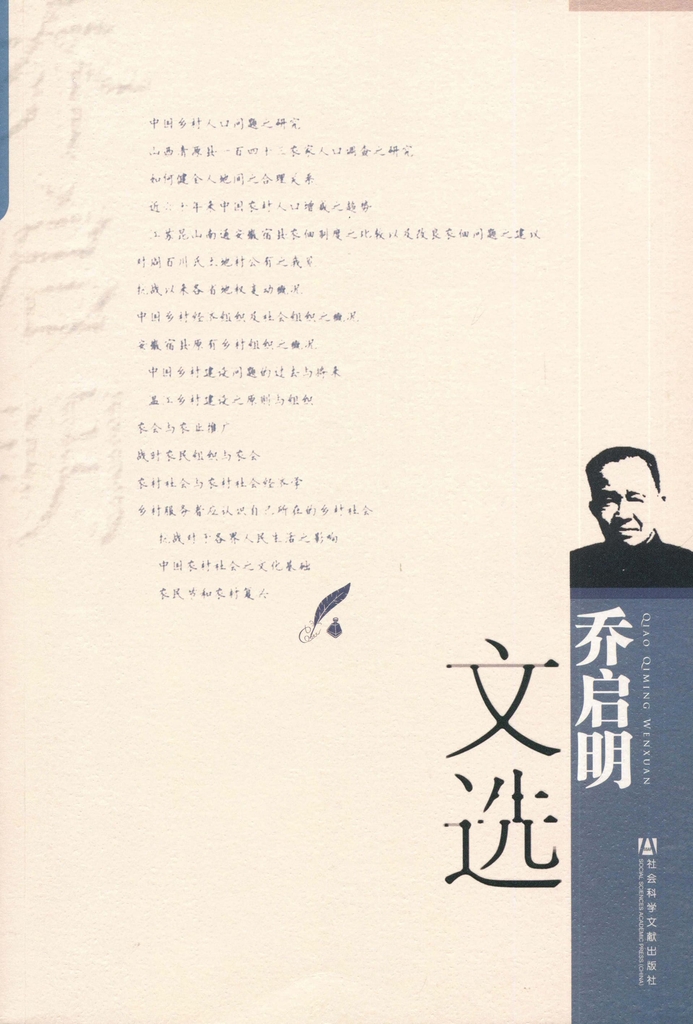 中国乡村人口问题之研究
山西清源县一百四十三农家人口调查之研究
如何健全人地间之合理关系
近六十年来中国农村人口增减之趋势
江苏昆山南通安徽宿县农佃制度之比较以及改良农佃问题之建议
对阎百川氏土地村公有之我见
抗战以来各省地权变动概况
中国乡村经济组织及社会组织之概况
安徽宿县原有乡村组织之概况
中国乡村建设问题的过去与将来
县乡村建设之原则与组织
农会与农业推广
战时农民组织与农会
农村社会与农村社会经济学
乡村服务者应认识自己所在的乡村社会
抗战对于各界人民生活之影响
中国农村社会之文化基础
农民 和农村复兴
文选
乔启明
QIAO QIMING WENXUAN
社会科学文献出版社
SOCIAL SCIENCES ACADEMIC PRESS (CHINA)